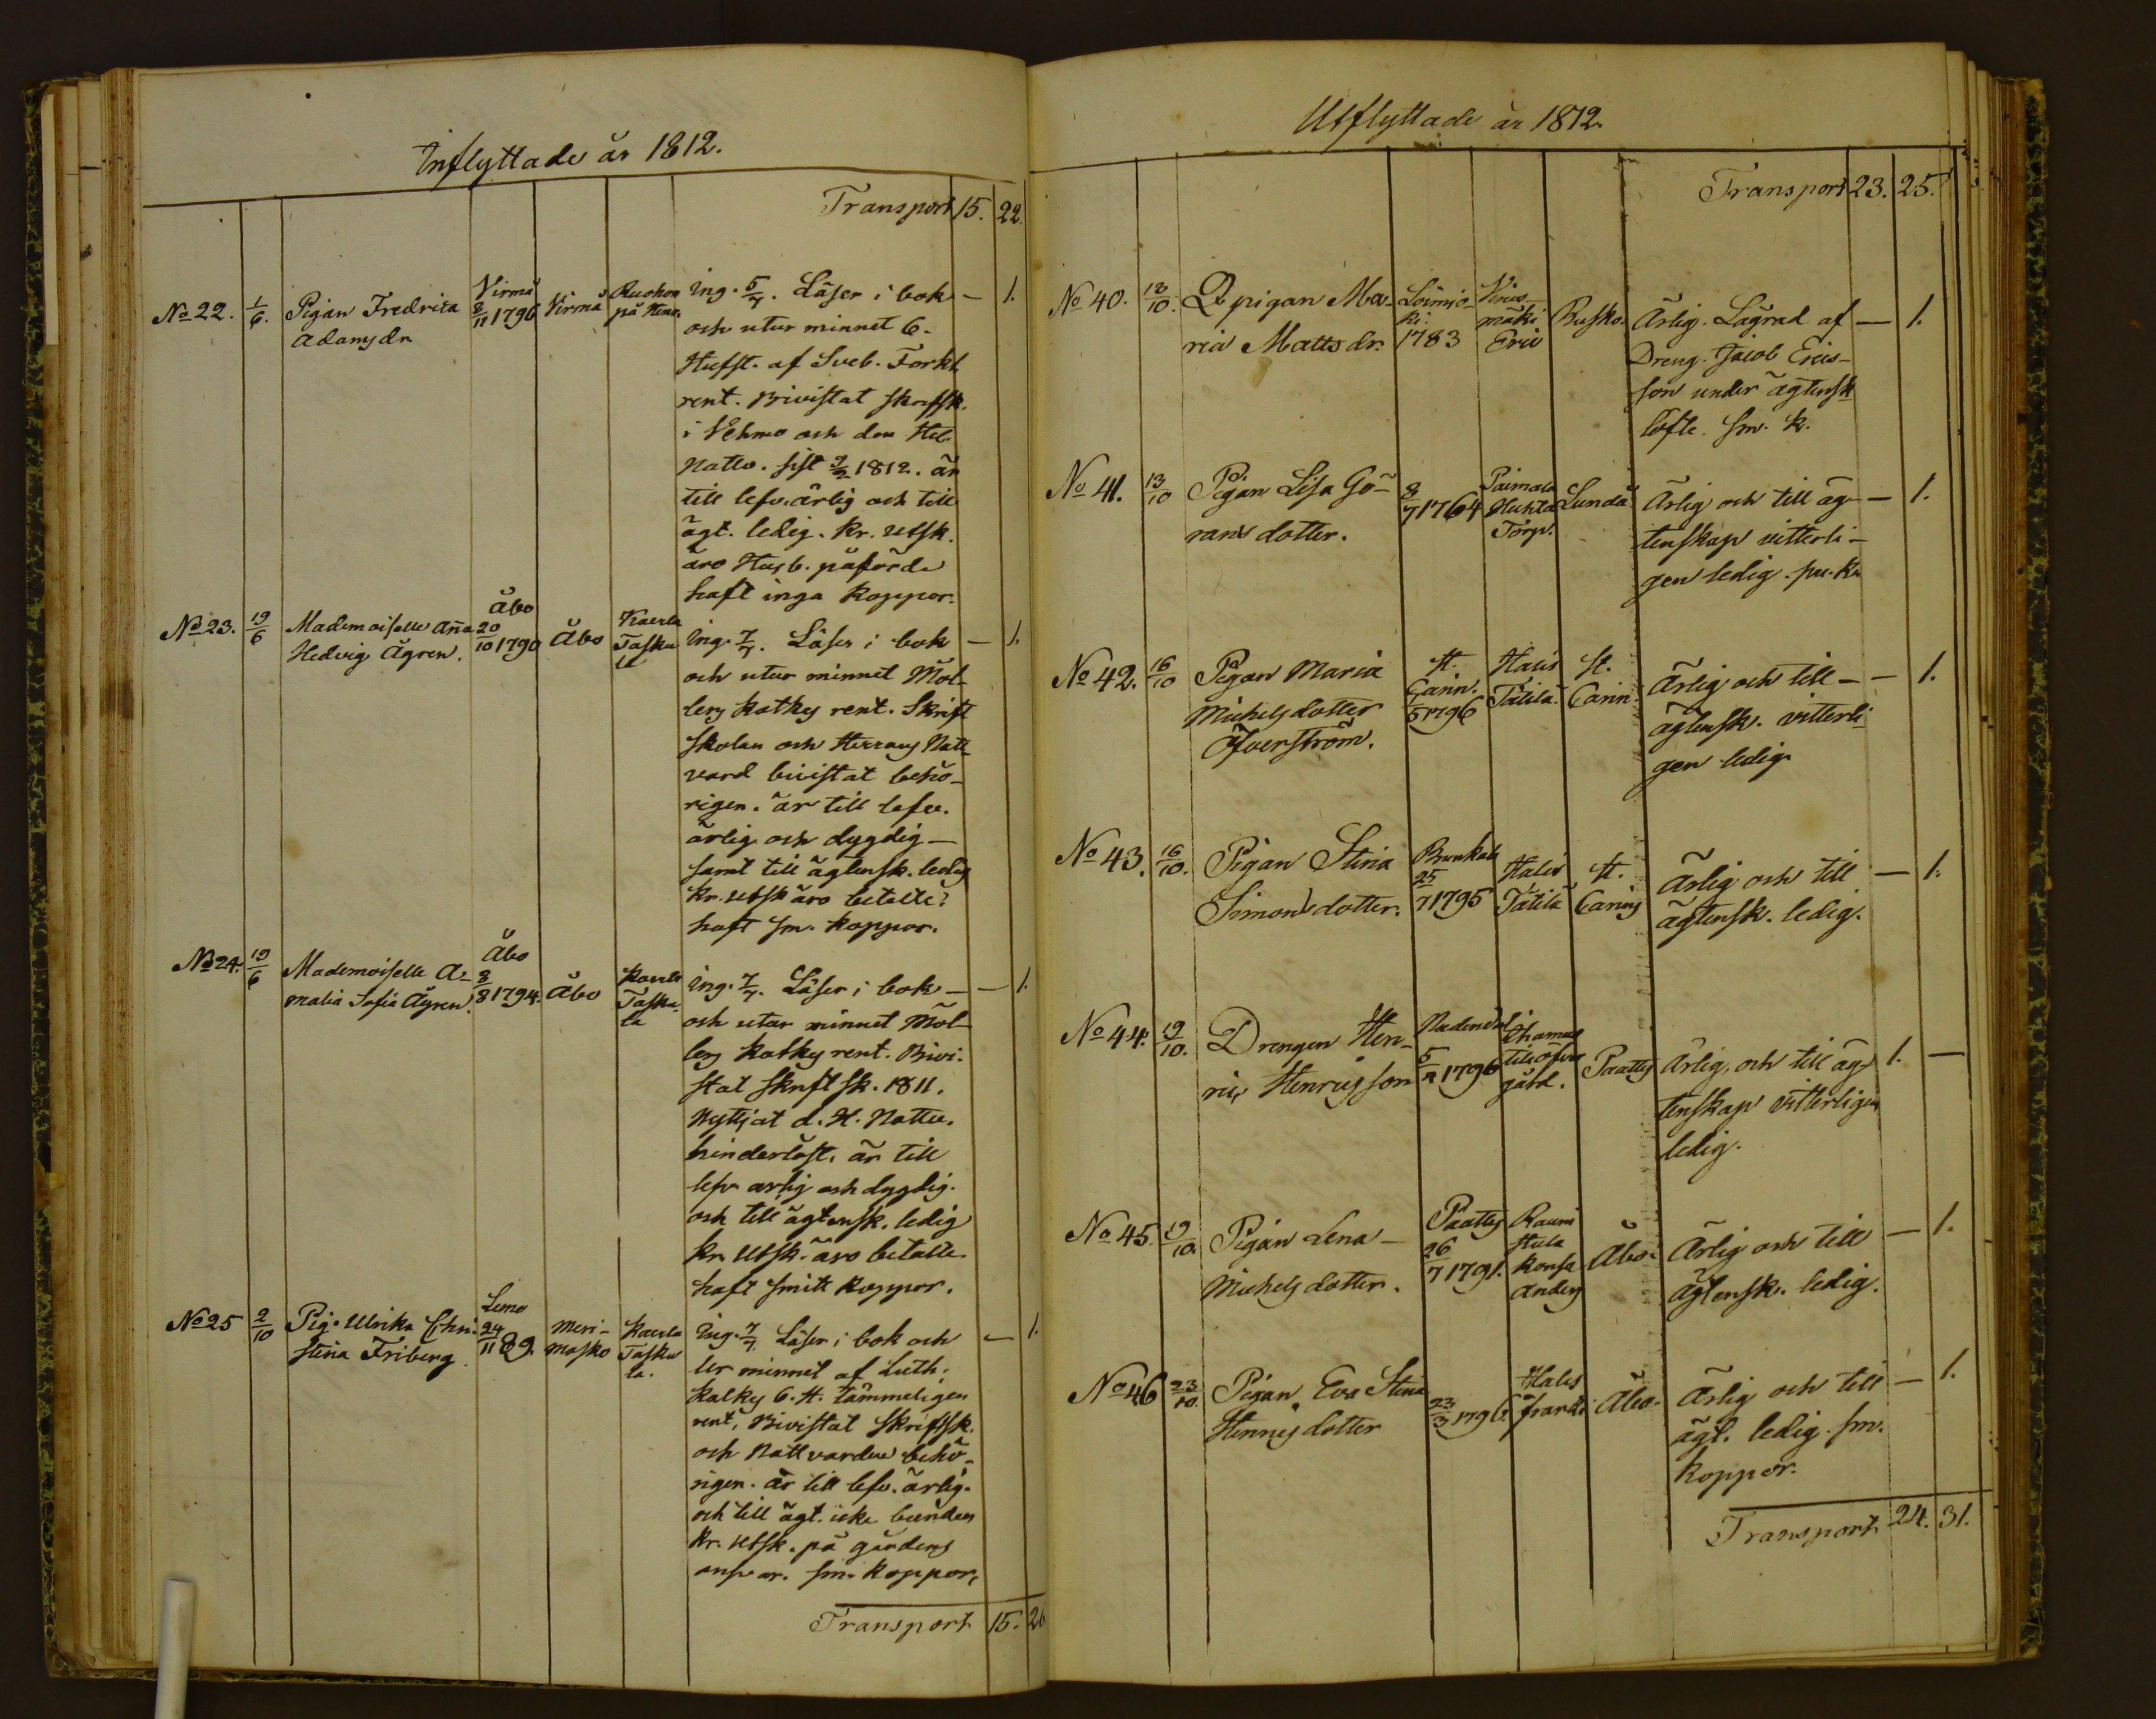 Inflyttade år 1812.
Transport 15. 22.
No 22. 1/6. Pigan Fredrica Adamsdr. Virmå 8/11 1796 Virmå Ruohon på
ing. 5/7. Läser i bok — 1.
och utur minnet 6.
Hufst. af Sveb. Forkl.
rent. Bivistat skriftsk.
i Vehmo och den Hel.
Nattv. sist 1812. är
till lefv. ärlig och till
ägt. ledig. Kr. utsk.
äro Husb. påförda
haft inga koppor.
No 23. 19/6 Mademoiselle Aña Hedvig Ågren. Åbo 20/10 1790 Åbo Kaerla Taskula
ing. 7/7. Läser i bok — 1.
och utur minnet Möl-
lers Katkes rent. Skrift
skolan och Herrans Natt
vard bivistat behö-
rigen. är till lefv.
ärlig och dygdig —
samt till ägtensk. ledig
Kr. utsk äro betalte.
haft sm. koppor.
No 24. 19/6 Mademoiselle A-
malia Sofia Ågren. Åbo 8/8 1794. Åbo Kaerla Taskula
ing. 7/7. Läser i bok — 1.
och utur minnet Möl-
lers Katkes rent. Bivi-
stat skriftsk. 1811.
Nyttjat d. H. Nattv.
hinderlöst. är till
lefv ärlig och dygdig.
och till ägtensk. ledig
kr. utsk. äro betalte.
haft smitt koppor.
No 25 2/10 Pig. Ulrika Chri-
stina Friberg. Lemo 24/11 89. Meri-
masko Kaerla Taskula.
ing. 7/7. Läser i bok och — 1.
ur minnet af Luth.
Katkes 6. H. tämmeligen
rent, Bivistat Skriftsk.
och Nattvarden behö-
rigen. är till lefv. ärlig.
och till ägt. icke bunden
Kr. utsk. på gårdens
ansvar. sm. koppor,
Transport 15. 26
Utflyttade år 1812.
Transport 23. 25.
No 40. 12/10. Qpigan Ma-
ria Mattsdr. Loimjo-
ki. 1783 mäki Eric Rusko. Ärlig. Lägrad af — 1.
Dreng. Jacob Erics-
son under ägtensk
löfte. sm. k.
No 41. 13/10 Pigan Lisa Gö-
rans dotter. 8/7 1764 Paimala Huhta Torp. Lundå Ärlig och till äg- — 1.
tenskap vitterli-
gen ledig.
No 42. 16/10 Pigan Maria
Michelsdotter
Öfverström. St. Carin. 1796 Halis Tätilä. St. Carin. Ärlig och till — — 1.
ägtensk. vitterli
gen ledig.
No 43. 16/10. Pigan Stina
Simonsdotter. Brunkala 25/7 1795 Halis Tätilä St. Carins Ärlig och till — 1.
ägtensk. ledig.
No 44. 19/10. Drengen Hen-
ric Henricsson Nadendal 1796 gård. Paattis Ärlig, och till äg- 1. —
tenskap vitterligen
ledig.
No 45. 19/10. Pigan Lena —
Michelsdotter. Paattis 26/7 1791. Rauni stula Konsa Anders Åbo. Ärlig och till — 1.
ägtensk. ledig.
No 46 23/10. Pigan Eva Stina
Hennesdotter 23/3 1796. Halis frantsi Åbo. Ärlig och till — 1.
ägt. ledig. sm.
koppor.
Transport 24. 31.